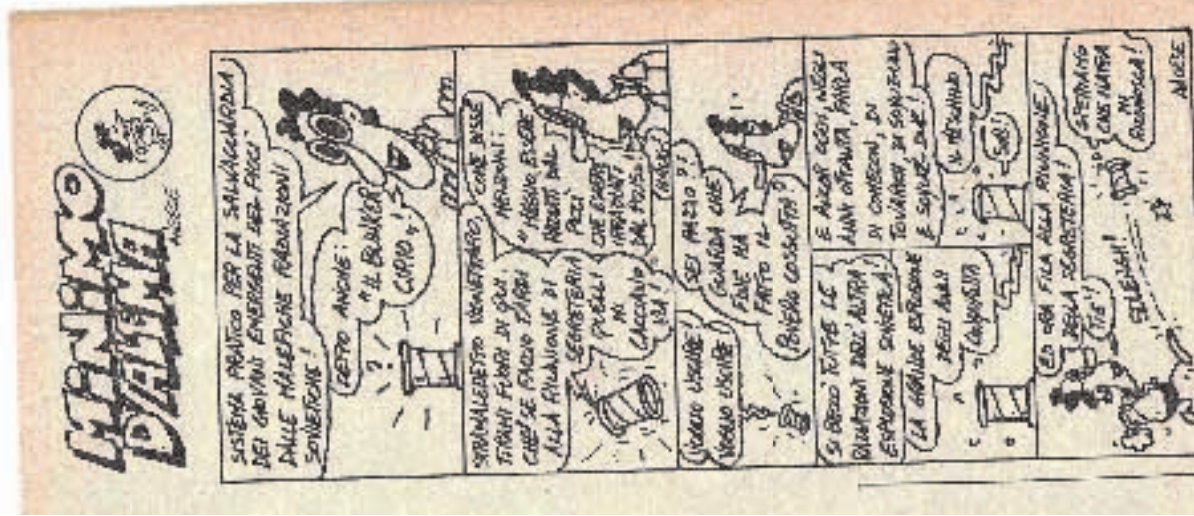 MINIMO
DALEMA
ANGESE
SISTEMA PRATICO PER LA SALVAGUARDIA
DEI GIOVANI EMERGENTI DEL PICCI
DALLE MALEFICHE RADIAZIONI
SOVIETICHE!
DETTO ANCHE:
"IL BUNKER
CUPIO"!
STRAMALEDETTO VENEFICARO
TIRAMI FUORI DI QUI
CHÉ SE FACCIO TARDI
ALLA RIUNIONE DI
SEGRETERIA
QUELLI
MI
CACCIANO
VIA!
COME DISSE
"MEGLIO ESSERE
RADIATI DAL
PICCI,
CHE
IRRADIATI
DAL POSSI!
VOGLIO USCIRE!
VOGLIO USCIRE
SEI PAZZO?!
GUARDA CHE
FINE HA
FATTO IL
POVERO COSSUTTA!
SI BECCÒ TUTTE LE
RADIAZIONI DELL'ALTRA
ESPLOSIONE SOVIETICA!
LA GRANDE ESPLOSIONE
DEGLI ANNI
CINQUANTA
E ANCOR OGGI, NEGLI
ANNI OTTANTA, PARLA
DI COMECON, DI
TOVARICH, DI
E
IL MESCHINO
SOB!
ED ORA FILA ALLA RIUNIONE
DELLA SEGRETERIA!
TIÈ!
SPERIAMO
CHE NATTA
MI
RICONOSCA!
ANGESE